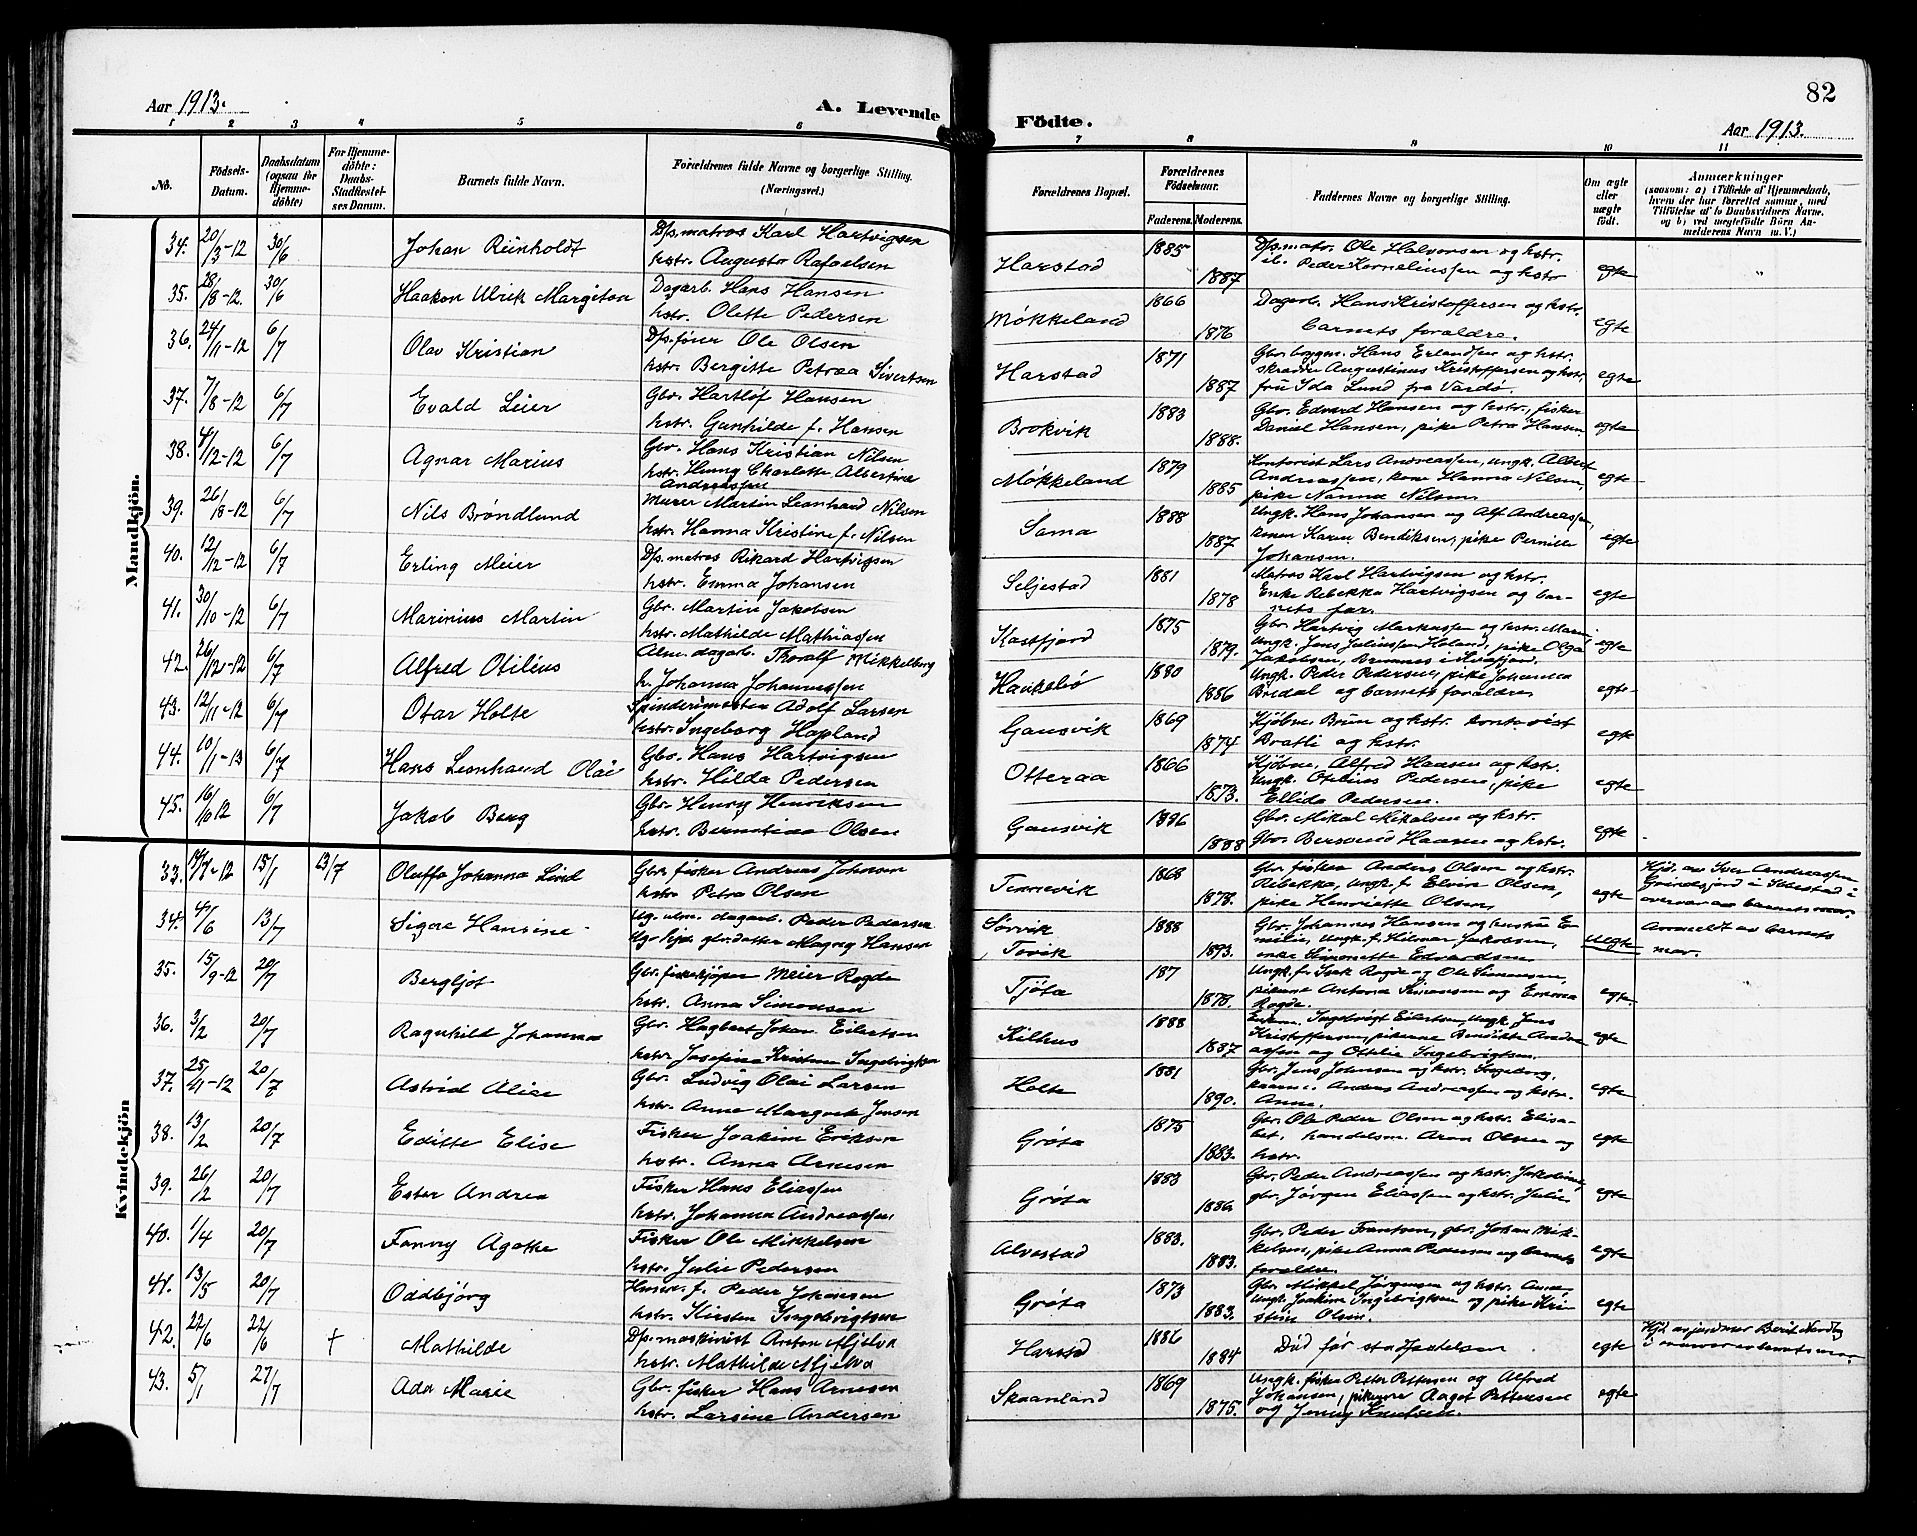 82
Aar 1913.
A. Levende
Födte.
Aar 1913.
1 2 3 4 5 6 7 8 9 10 11
No.
Födsels-
Datum.
Daabsdatum
(ogsaa for
Hjemme-
döbte)
For Hjemme-
döbte:
Daabs-
Stadfæstel-
ses Datum.
Barnets fulde Navn.
Forældrenes fulde Navne og borgerlige Stilling.
(Næringsvei.)
Forældrenes Bopæl.
Forældrenes
Födselsaar.
Faderens. Moderens.
Faddernes Navne og borgerlige Stilling.
Om ægte
eller
uægte
født.
Anmærkninger
(saasom: a) i Tilfælde af Hjemmedaab,
hvem der har forrettet samme, med
Tilföielse af to Daabsvidners Navne,
og b) ved uægtefödte Börn An-
melderens Navn m. V.)
Mandkjön.
34. 20/3-12 30/6 Johan Reinholdt
Dps.matros Karl Hartvigsen
hstr. Augusta Rafaelsen
Harstad 1885 1887
Dps.matr. Ole Halvorsen og hstr.
Peder Korneliussen og hstr
egte "
35. 28/8-12. 30/6 Haakon Ulrik Margiton
Dagarb. Hans Hansen
hstr. Olette Pedersen
Møkkeland 1866 1876
Dagarb. Hans Kristoffersen og hstr.
barnets foraldre.
egte
36. 24/11-12 6/7 Olav Kristian
Dps.fører Ole Olsen
hstr. Bergitte Petrea Sivertsen
Harstad 1871 1887
Gbr. byggm. Hans Erlandsen og hstr.
skrædder Augustinus Kristoffersen og hstr,
fru Ida Lund fra Vardø.
egte
37. 7/8-12 6/7 Evald Leier
Gbr. Hartløf Hansen
hstr. Gunhilde f. Hansen
Brokvik 1883 1888.
Gbr. Edvard Hansen og hstr., fisker
Daniel Hansen, pike Petra Hansen.
egte
38. 4/12-12 6/7 Agnar Marius
Gbr. Hans Kristian Nilsen
hstr. Henny Charlotte Albertine
Andreassen
Møkkeland 1879 1885
Kontorist Lars Andreassen, ungk. Albert
Andreassen, kone Hanna Nilsen,
pike Nanna Nilsen.
egte
39. 26/8-12 6/7 Nils Brøndlund
Murer Martin Leonhard Nilsen
hstr. Hanna Kristine f. Nilsen
Sama 1888 1887
Ungk. Hans Johansen og Alf Andreassen,
konen Karen Bendiksen, pike Pernille
Johansen.
egte
40. 12/12-12 6/7 Erling Meier
Dps.matros Rikard Hartvigsen
hstr. Emma Johansen
Seljestad 1881 1878
Matros Karl Hartvigsen og hstr.
Enke Rebekka Hartvigsen og bar-
nets far.
egte
41. 30/10-12 6/7 Marinius Martin
Gbr. Martin Jakobsen
hstr. Mathilde Mathiassen
Kastfjord 1875 1879.
Gbr. Hartvig Markussen og hstr. Marie,
Ungk. Jens Juliussen Høland, pike Olga
Jakobsen, Bremnes i Kvæfjord.
egte
42. 26/12-12 6/7 Alfred Otilius
Alm. dagarb. Thoralf Mikkelborg
h. Johanna Johannessen
1880 1886
Ungk. Peder Pedersen, pike Johanna
Bredal og barnets foraldre
egte
43. 12/11-12 6/7 Otar Holte
Spinderimester Adolf Larsen
hstr. Ingeborg Hapland
Gansvik 1869 1874
Kjøbm. Brun og hstr. kontorist
Bratli og hstr.
egte
44. 10/11-13 6/7 Hans Leonhard Olai
Gbr. Hans Hartvigsen
hstr. Hilda Pedersen
Otteraa 1866 1873.
Kjøbm. Alfred Haasen og hstr.
Ungk. Otelius Pedersen, pike
Ellida Pedersen.
egte
45. 16/10 12 6/7 Jakob Berg
Gbr. Henry Henriksen
hstr. Berntine Olsen
Gansvik 1886 1888
Gbr. Mikal Mikalsen og hstr.
Gbr. Bersvend Haasen og hstr.
egte
Kvindekjön
33. 14/7-12 15/1 13/7 Oluffa Johanna Lind
Gbr. fisker Andreas Johnsen
hstr. Petra Olsen
Tennevik 1868 1878.
Gbr. fisker Anders Olsen og hstr.
Rebekka, ungk. f. Elvin Olsen,
pike Henriette Olsen,
egte
Hjd. av Iver Andreassen
Grindefjord i Ibbestad i
overvær av barnets mor.
34. 4/6 13/7 Signe Hansine
Ug. alm. dagarb. Peder Pedersen
Ug. hjv. gbr.datter Magny Hansen
Sørvik
Tovik
1888 1893.
Gbr. Johannes Hansen og hustru E-
milie, Ungk. f. Hilmar Jakobsen,
enke Simonette Edvardsen
uegte
Anmeldt av barnets
mor.
35. 15/9-12 20/7 Bergljot
Gbr. fiskekjøper Meier Rogde
hstr. Anna Simonsen
Tjøta 187 1878.
Ungk. f. Isak Rogde og Ole Simonsen,
pikerne Antona Simonsen og Emma
Rogde.
egte
36. 3/2 20/7 Ragnhild Johanna
Gbr. Hagbart Johan Eilertsen
hstr. Josefine Kristine Ingebrigtsen
Kilhus 1888 1887
Enkem. Ingebrigt Eilertsen, ungk. Jens
Kristoffersen, pikerne Bendikte Andre-
assen og Ottelie Ingebrigtsen.
egte
37. 25/11-12 20/7 Astrid Alise
Gbr. Ludvig Olai Larsen
hstr. Anna Margrete Jensen
Holte 1881 1890.
Gbr. Jens Johnsen og hstr. Ingeborg,
Anders Andreassen og hstr.
Anne.
egte
38. 13/2 20/7 Editte Elise
Fisker Joakim Eriksen
hstr. Anna Arnesen
Grøta 1875 1883.
Gbr. Ole Peder Olsen og hstr. Elisa-
bet, handelsm. Aron Olsen og
hstr.
egte
39. 26/2 20/7 Ester Andrea
Fisker Hans Eliassen
hstr. Johanna Andreassen
Grøta 1883 1886.
Gbr. Peder Andreassen og hstr. Jakobine,
gbr. Jørgen Eliassen og hstr. Julie
egte
40. 1/4 20/7 Fanny Agathe
Fisker Ole Mikkelsen
hstr. Julie Pedersen
Alvestad 1883. 1883.
Gbr. Peder Frantsen, gbr. Johan Mik-
kelsen, pike Anna Pedersen og barnets
foraldre.
egte
41. 13/5 20/7 Oddbjörg
Husm. f. Peder Johansen
hstr. Kirsten Ingebrigtsen
Grøta 1873 1883.
Gbr. Mikkel Jørgensen og hstr. Anne,
Ungk. Joakim Ingebrigtsen og pike Kri-
stine Olsen.
egte
42. 22/6 22/6 † Mathilde
Dps.maskinist Anton Mjelva
hstr. Mathilde Mjelva
Harstad 1886 1884
Død før stadfæstelsen.
egte
Hjd. av jordmor Berit Nordby
i nærvær av barnets mor.
43. 5/1 27/7 Ada Marie
Gbr. fisker Hans Arnesen
hstr. Larsine Andersen
Skaanland 1869 1875.
Ungk. fisker Petter Pettersen og Alfred
Johansen, pikerne Aagot Pettersen
og Jenny Knutsen.
egte